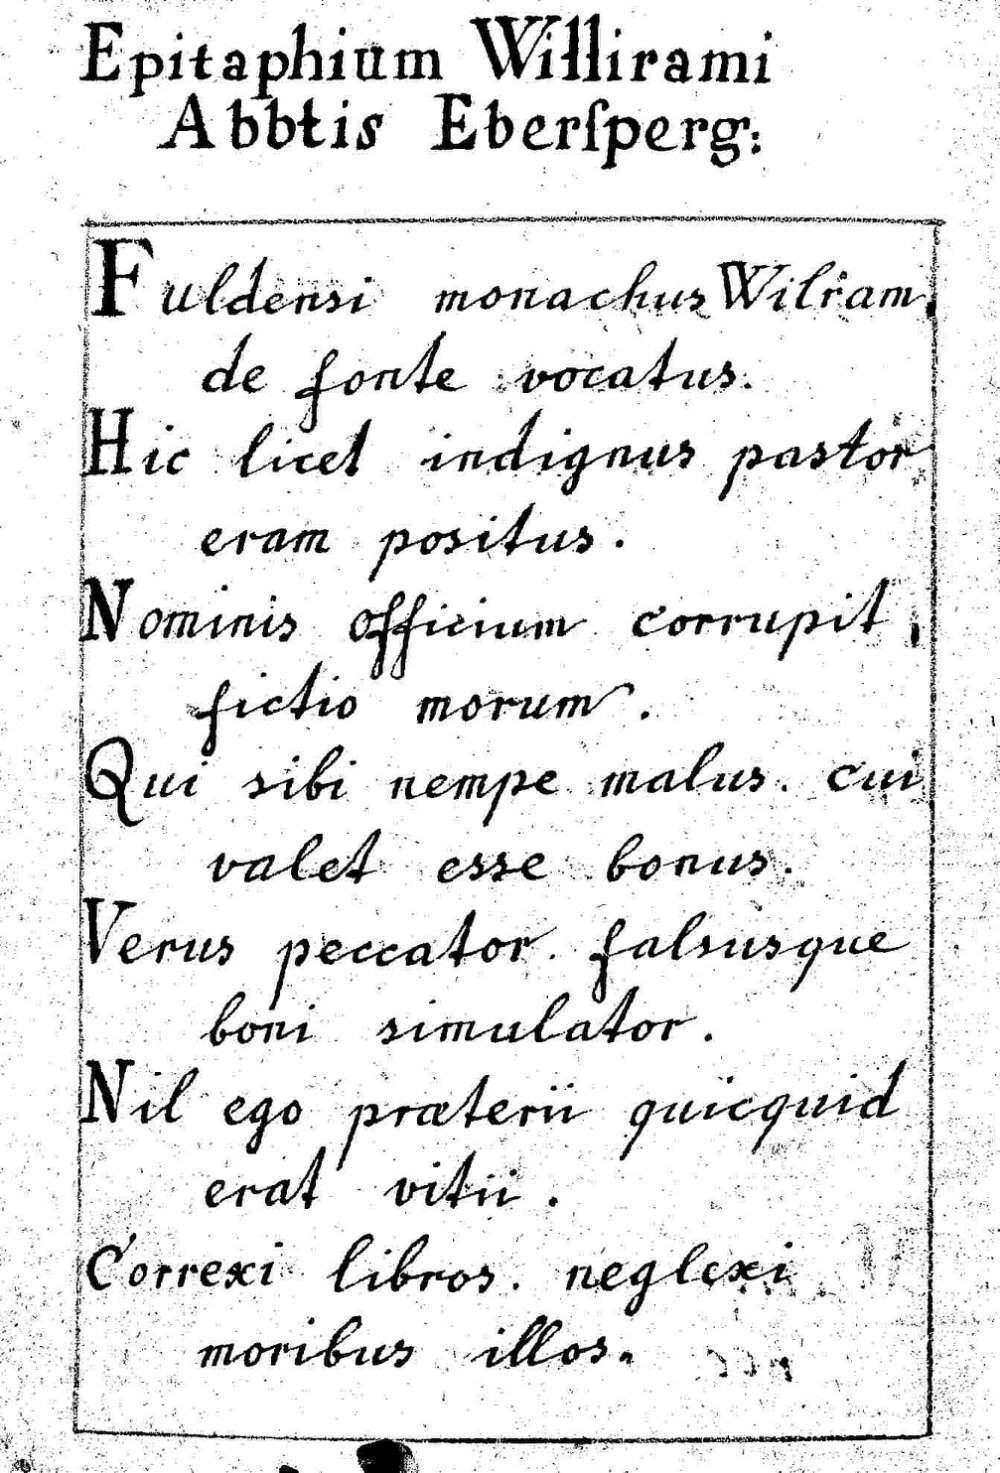 Epitaphium Willirami
Abbtis Eberſperg:
Fuldensi monachus Wilram,
de fonte vocatus.
Hic licet indignus pastor
eram positus.
Nominis officium corrupit,
fictio morum.
Qui sibi nempe malus. cui
valet esse bonus.
Verus peccator. falsusque
boni simulator.
Nil ego præterii quicquid
erat vitii.
Correxi libros. neglexi
moribus illos.